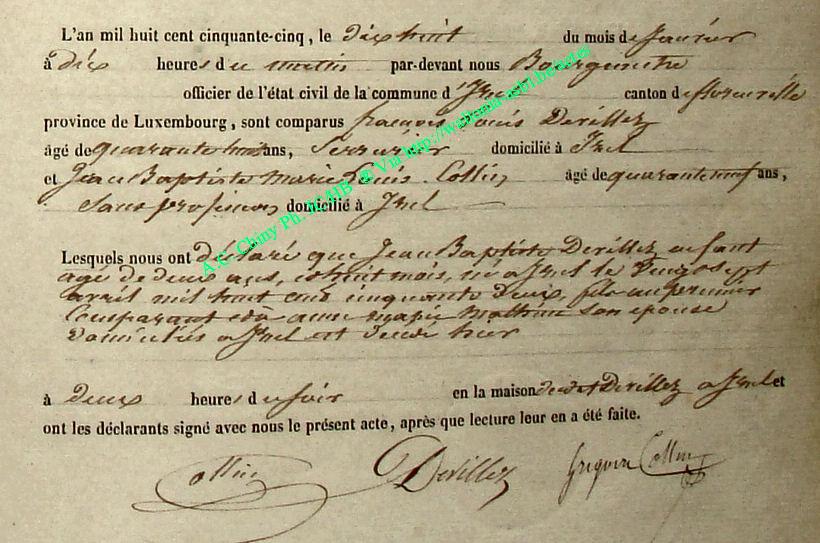 L'an mil huit cent cinquante-cinq, le dix huit du mois de Janvier
à dix heures du matin par-devant nous Bourgmestre
officier de l'état civil de la commune d'Izel canton de florenville
province de Luxembourg, sont comparus françois Louis Devillez
âgé de quarante ans, Serrurier domicilié à Izel
et Jean Baptiste Marie Louis Collin, âgé de quarante neuf ans,
Sans profession domicilié à Izel
Lesquels nous ont déclaré que Jean Baptiste Devillez enfant
agé de deux ans, et huit mois, né a Izel le vingt sept
avril mil huit cent cinquante deux, fils au premier
Comparant et à anne marie Mathieu son épouse
Domiciliés a Izel est décédé hier
à deux heures du soir en la maison dudit Devillez a Izel et
ont les déclarants signé avec nous le présent acte, après que lecture leur en a été faite.
Collin Devillez Grégoire Collin
A.E. Chiny Ph. Via http://wallonia-asbl.be/actes